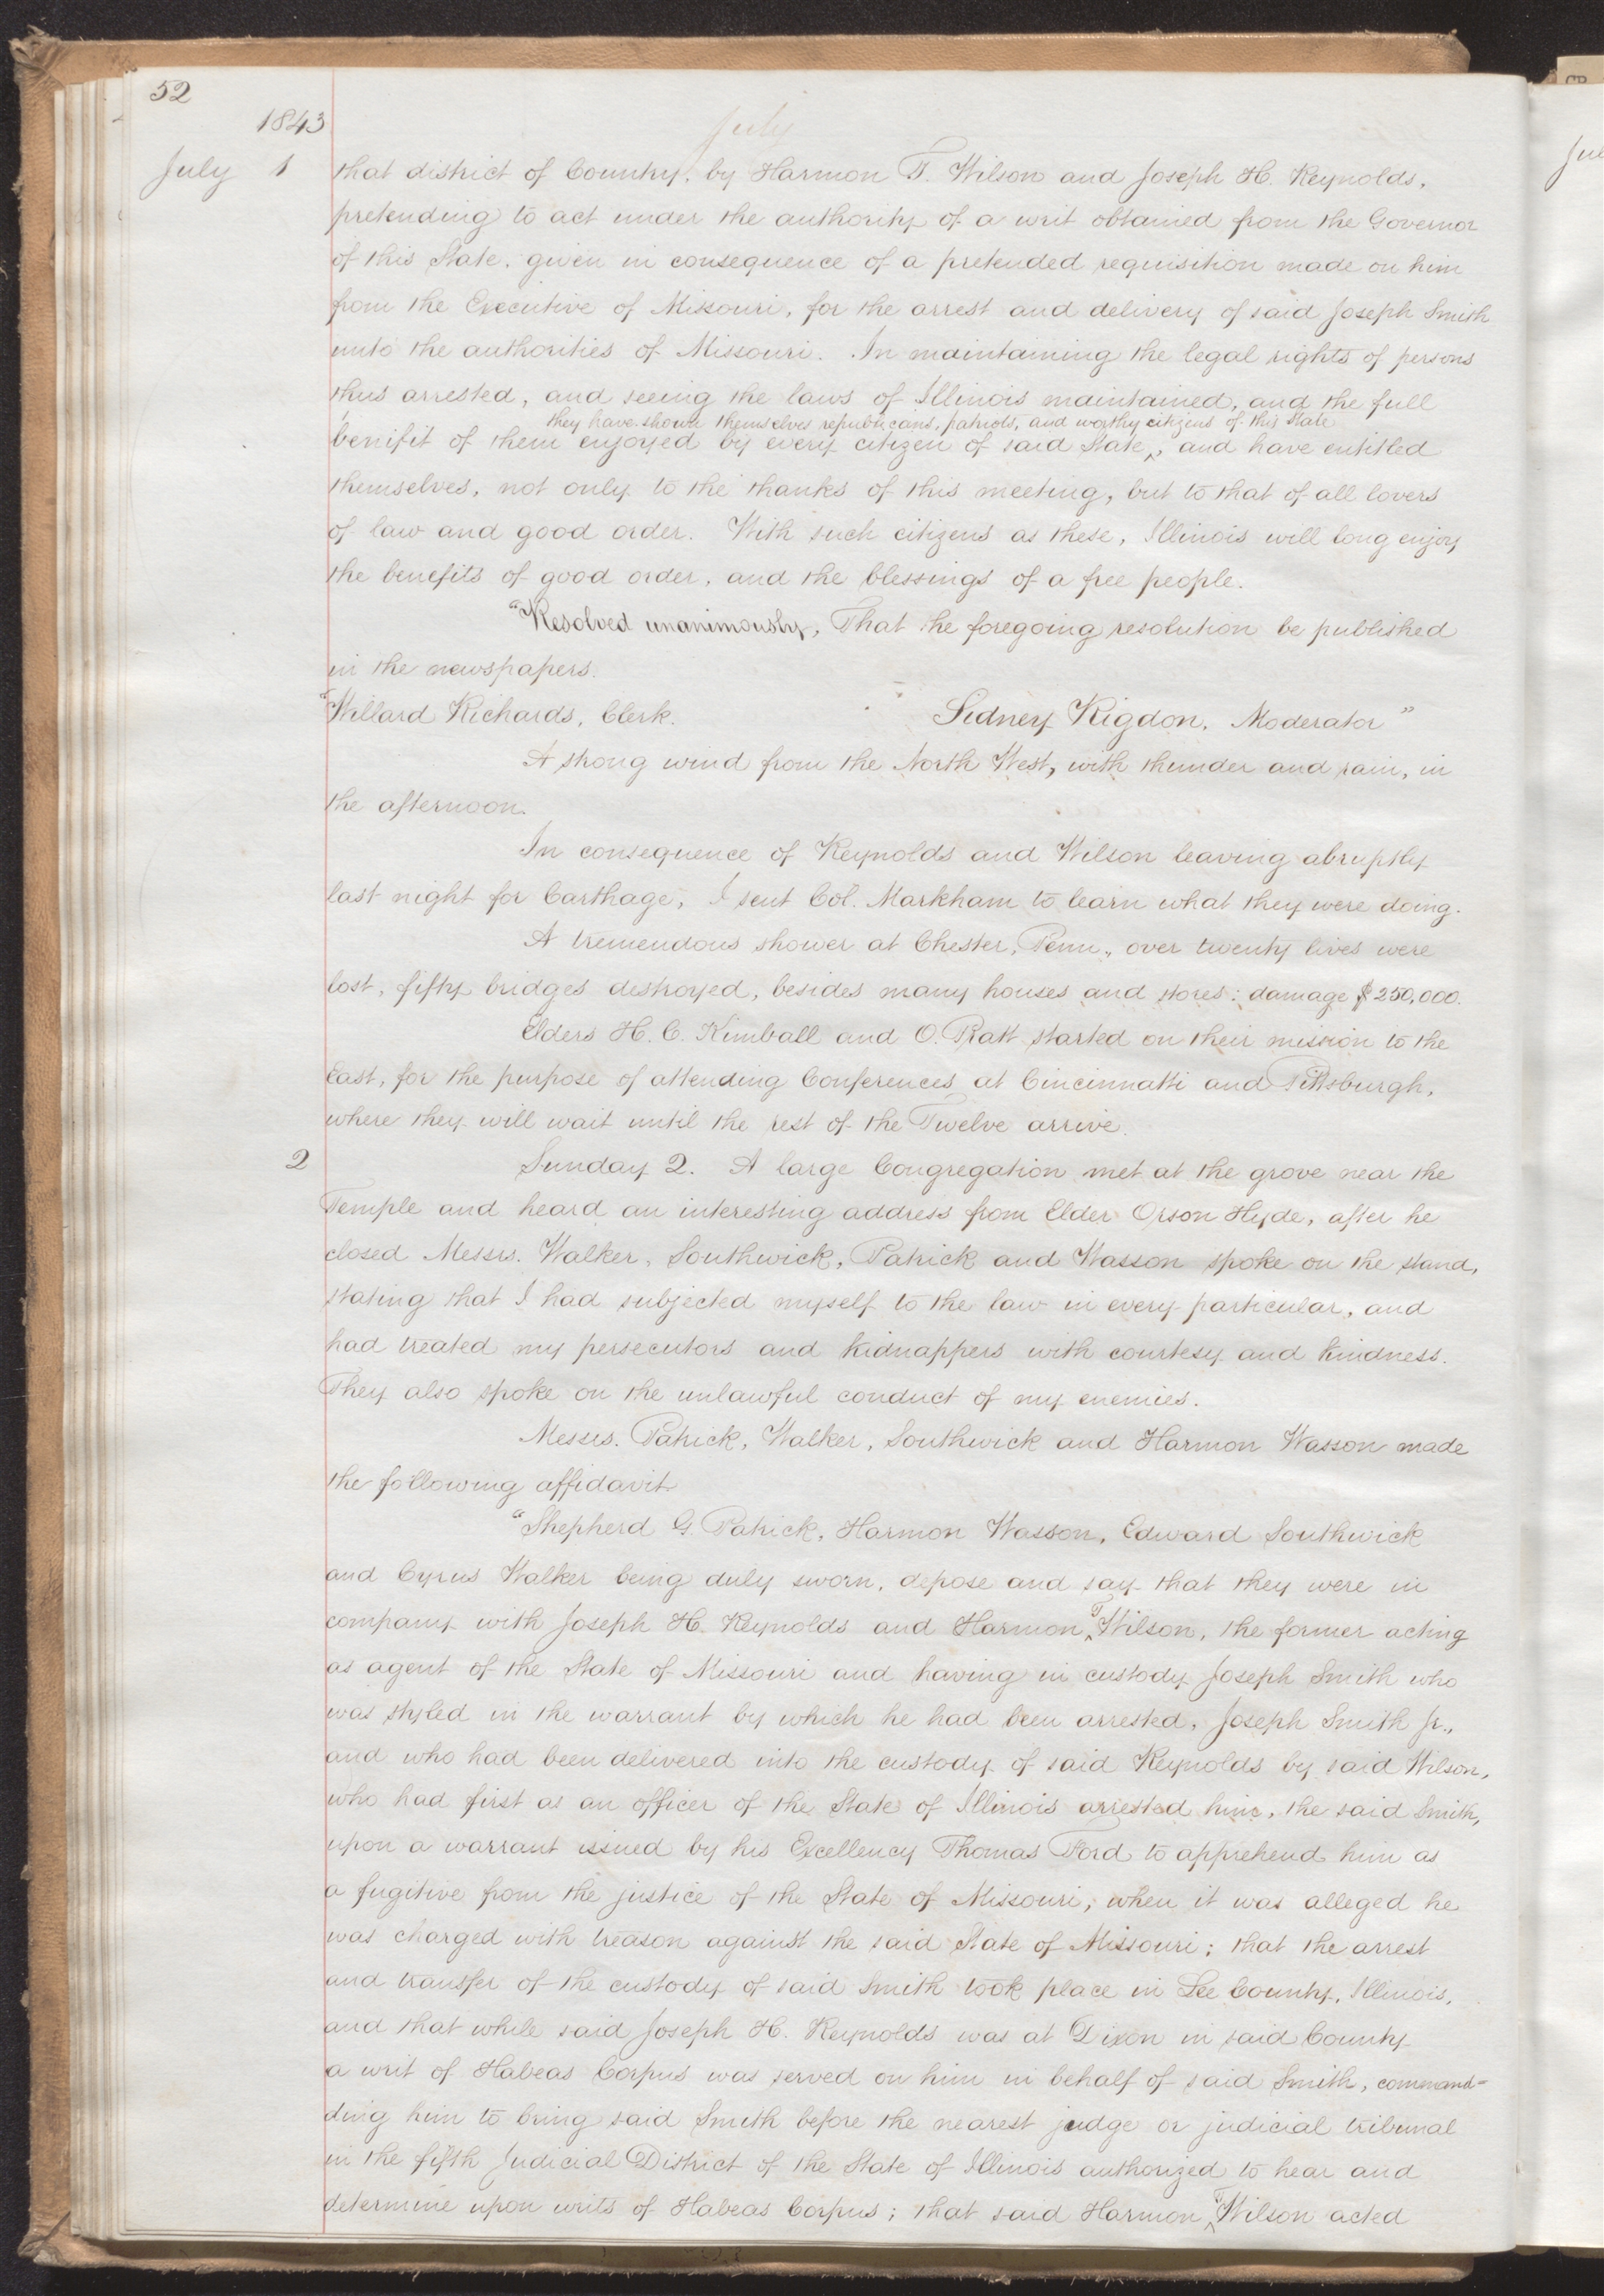 52
1843
July
July 1
that district of Country, by Harmon T. Wilson and Joseph H. Reynolds,
pretending to act under the authority of a writ obtained from the Governor
of this State, given in consequence of a pretended requisition made on him
from the Executive of Missouri, for the arrest and delivery of said Joseph Smith
unto the authorities of Missouri. In maintaining the legal rights of persons
thus arrested, and seeing the laws of Illinois maintained, and the full
they have shown themselves republicans, patriots, and worthy citizens of this State
benifit of them enjoyed by every citizen of said State^, and have entitled
themselves, not only to the thanks of this meeting, but to that of all lovers
of law and good order. With such citizens as these, Illinois will long enjoy
the benefits of good order, and the blessings of a free people.
"Resolved unanimously, That the foregoing resolution be published
in the newspapers.
"Willard Richards, Clerk. Sidney Rigdon, Moderator"
A strong wind from the North West, with thunder and rain, in
the afternoon.
In consequence of Reynolds and Wilson leaving abruptly
last night for Carthage, I sent Col. Markham to learn what they were doing.
A tremendous shower at Chester, Penn., over twenty lives were
lost, fifty bridges destroyed, besides many houses and stores; damage $250,000.
Elders H. C. Kimball and O. Pratt started on their mission to the
East, for the purpose of attending Conferences at Cincinnatti and Pittsburgh,
where they will wait until the rest of the Twelve arrive.
2
Sunday 2. A large Congregation met at the grove near the
Temple and heard an interesting address from Elder Orson Hyde, after he
closed Messrs. Walker, Southwick, Patrick and Wasson spoke on the stand,
stating that I had subjected myself to the law in every particular, and
had treated my persecutors and kidnappers with courtesy and kindness.
They also spoke on the unlawful conduct of my enemies.
Messrs. Patrick, Walker, Southwick and Harmon Wasson made
the following affidavit
"Shepherd G. Patrick, Harmon Wasson, Edward Southwick
and Cyrus Walker being duly sworn, depose and say that they were in
company with Joseph H. Reynolds and Harmon ^T Wilson, the former acting
as agent of the State of Missouri and having in custody Joseph Smith who
was styled in the warrant by which he had been arrested, Joseph Smith Jr.,
and who had been delivered into the custody of said Reynolds by said Wilson,
who had first as an officer of the State of Illinois arrested him, the said Smith,
upon a warrant issued by his Excellency Thomas Ford to apprehend him as
a fugitive from the justice of the State of Missouri; when it was alleged he
was charged with treason against the said State of Missouri; that the arrest
and transfer of the custody of said Smith took place in Lee County, Illinois,
and that while said Joseph H. Reynolds was at Dixon in said County
a writ of Habeas Corpus was served on him in behalf of said Smith, command=
ding him to bring said Smith before the nearest judge or judicial tribunal
in the fifth Judicial District of the State of Illinois authorized to hear and
determine upon writs of Habeas Corpus; that said Harmon ^T Wilson acted